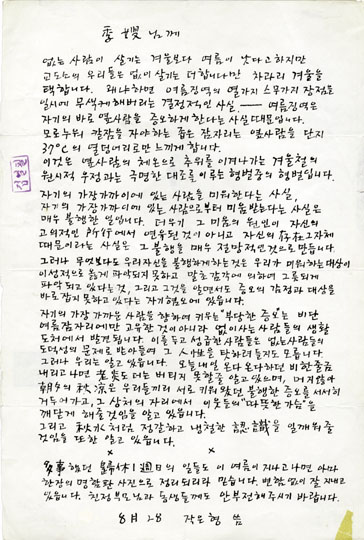 季 嫂님께
없는 사람이 살기는 겨울보다 여름이 낫다고하지만
교도소의 우리들은 없이 살기는 더합니다만 차라리 겨울을
택합니다. 왜냐하면 여름징역의 열가지 스무가지 장점을
일시에 무색케해버리는 결정적인 사실. ── 여름징역은
자기의 바로 옆사람을 증오하게 한다는 사실때문입니다.
모로누워 칼잠을 자야하는 좁은 잠자리는 옆사람을 단지
37°C의 열덩어리로만 느끼게 합니다.
이것은 옆사람의 체온으로 추위를 이겨나가는 겨울철의
원시적 우정과는 극명한 대조를 이루는 형벌중의 형벌입니다.
자기의 가장가까이에 있는 사람을 미워한다는 사실,
자기의 가장가까이에 있는 사람으로부터 미움받는다는 사실은
매우 불행한 일입니다. 더우기 그 미움의 원인이 자신의
고의적인 所行에서 연유된것이 아니고 자신의 存在 그자체
때문이라는 사실은 그 불행을 매우 절망적인것으로 만듭니다
그러나 무엇보다도 우리자신을 불행하게하는것은 우리가 미워하는대상이
이성적으로 옳게 파악되지못하고 말초감각에 의하여 그릇되게
파악되고 있다는것, 그리고 그것을 알면서도 증오의 감정과 대상을
바로잡지 못하고 있다는 자기혐오에 있습니다.
자기의 가장 가까운 사람을 향하여 키우는 부당한 증오는 비단
여름잠자리에만 고유한것이 아니라 없이사는사람들의 생활
도처에서 발견됩니다. 이를두고 성급한사람들은 없는사람들의
도덕성의 문제로 받아들여 그 人性을 탓하려들지도 모릅니다.
그러나 우리는 알고 있습니다. 오늘내일 온다 온다하던 비 한줄금
내리고나면 老炎도 더는 버티지 못할줄 알고있으며, 머지않아
朝夕의 秋凉은 우리들끼리 서로 키워왔던 불행한 증오를 서서히
거두어가고, 그 상처의 자리에서 이웃들의 "따뜻한 가슴"을
깨닫게 해줄것임을 알고 있습니다.
그리고 秋水처럼 정갈하고 냉철한 認識을 일깨워줄
것임을 또한 알고 있습니다.
× ×
多事했던 歸休1週日의 일들도 이 여름이 지나고나면 아마
한장의 명함판 사진으로 정리되리라 믿습니다. 변함없이 잘 지내고
있습니다. 친정부모님과 동생들께도 안부전해주시기 바랍니다.
8月 28 작은형 씀